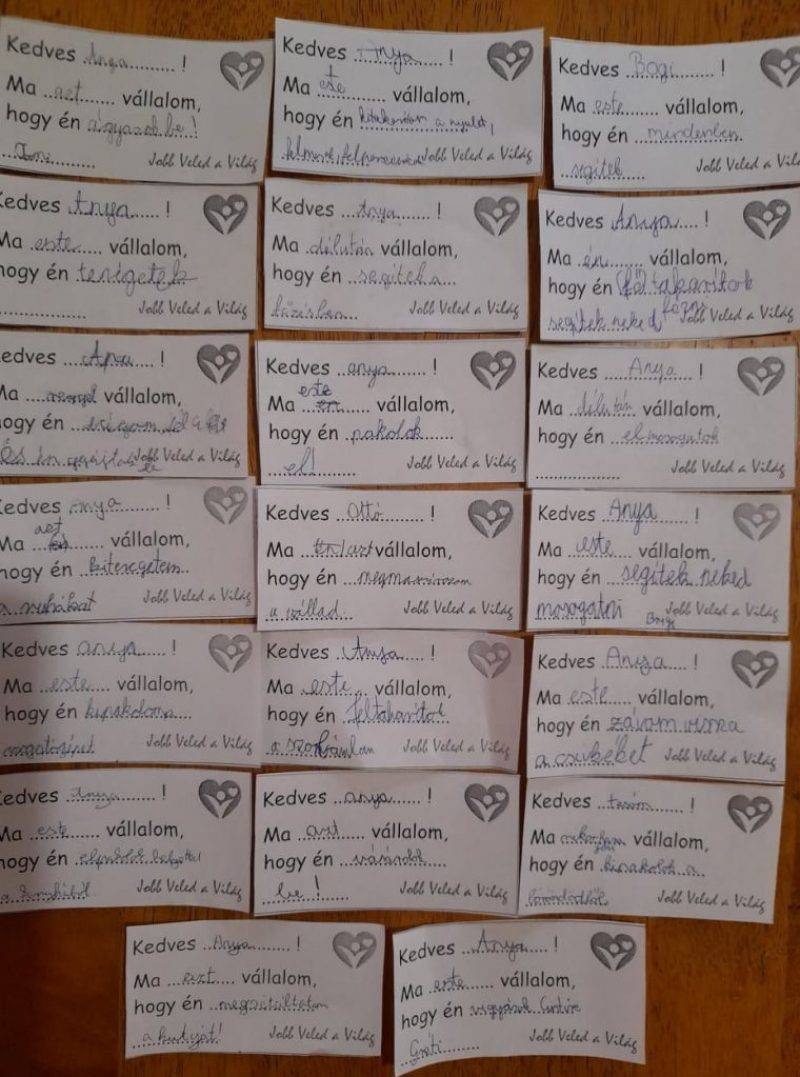 Kedves Anya !
Ma azt vállalom,
hogy én ágyazok be!
Jobb Veled a Világ
Kedves Anya !
Ma este vállalom,
hogy én kitakarítom a nyulat,
Jobb Veled a Világ
Kedves Bogi !
Ma este vállalom,
hogy én mindenben
segítek
Jobb Veled a Világ
Kedves Anya !
Ma este vállalom,
hogy én teregetek
Jobb Veled a Világ
Kedves Anya !
Ma délután vállalom,
hogy én segítek a
házisban
Jobb Veled a Világ
Kedves Anya !
Ma én vállalom,
hogy én föltakarítok
segítek neked főzni
Jobb Veled a Világ
Kedves Apa !
Ma vállalom,
hogy én
és én
Jobb Veled a Világ
Kedves anya !
Ma este vállalom,
hogy én pakolok
el!
Jobb Veled a Világ
Kedves Anya !
Ma délután vállalom,
hogy én elmosogatok
Jobb Veled a Világ
Kedves Anya !
Ma azt vállalom,
hogy én kiteregetem
a ruhákat
Jobb Veled a Világ
Kedves Ottó !
Ma azt vállalom,
hogy én megmasszírozom
a vállad
Jobb Veled a Világ
Kedves Anya !
Ma este vállalom,
hogy én segítek neked
mosogatni Bogi
Jobb Veled a Világ
Kedves anya !
Ma este vállalom,
hogy én kipakolom a
Jobb Veled a Világ
Kedves Anya !
Ma este vállalom,
hogy én feltakarítok
a szobámban
Jobb Veled a Világ
Kedves Anya !
Ma este vállalom,
hogy én zárom vissza
a csibéket
Jobb Veled a Világ
Kedves Anya !
Ma este vállalom,
hogy én
Jobb Veled a Világ
Kedves anya !
Ma azt vállalom,
hogy én vásárolok
be!
Jobb Veled a Világ
Kedves tesóm !
Ma vállalom,
hogy én kipakolok a
bőröndből
Jobb Veled a Világ
Kedves Anya !
Ma ezt vállalom,
hogy én megsétáltatom
a kutyát!
Jobb Veled a Világ
Kedves Anya !
Ma este vállalom,
hogy én vigyázok
Gréti
Jobb Veled a Világ